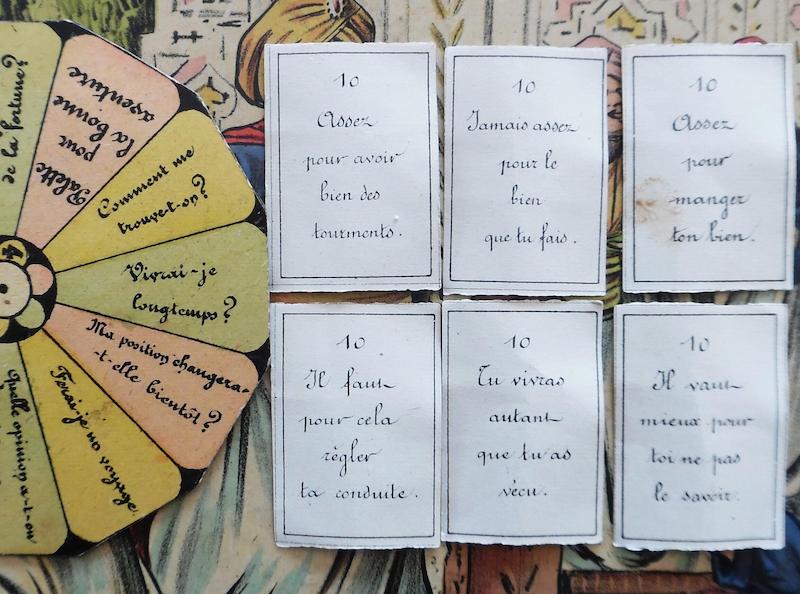 de la fortune?
Palette
pour
la bonne
aventure
Comment me
trouve-t-on?
Vivrai-je
longtemps?
Ma position changera-
-t-elle bientôt?
Ferai-je un voyage
Quelle opinion a-t-on
10
Assez
pour avoir
bien des
tourments.
10
Jamais assez
pour le
bien
que tu fais.
10
Assez
pour
manger
ton bien.
10
Il faut
pour cela
règler
ta conduite.
10
Tu vivras
autant
que tu as
vécu.
10
Il vaut
mieux pour
toi ne pas
le savoir.